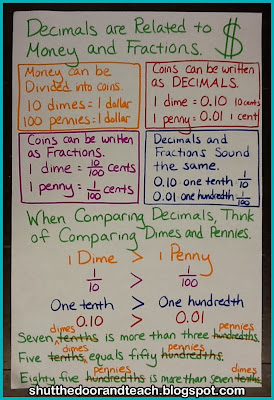 Decimals are Related to
Money and Fractions. $
Money can be
Divided into coins.
10 dimes = 1 dollar
100 pennies = 1 dollar
Coins can be written
as DECIMALS.
1 dime = 0.10 10 cents
1 penny = 0.01 1 cent
Coins can be written
as Fractions.
1 dime = 10/100 cents
1 penny = 1/100 cents
Decimals and
Fractions Sound
the same.
0.10 one tenth 1/10
0.01 one hundredth 1/100
When Comparing Decimals, Think
of Comparing Dimes and Pennies.
1 Dime > 1 Penny
1/10 > 1/100
One tenth > One hundredth
0.10 > 0.01
dimes pennies
Seven tenths is more than three hundredths.
dimes pennies
Five tenths equals fifty hundredths.
pennies dimes
Eighty five hundredths is more than seven tenths.
shutthedoorandteach.blogspot.com